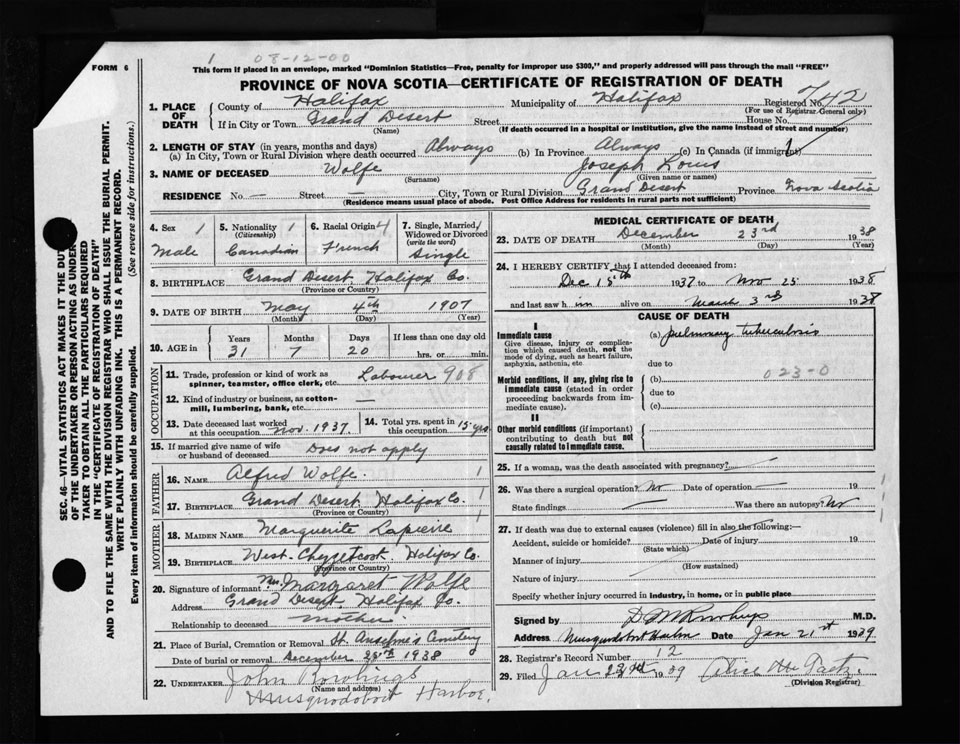 1 08-12-00
FORM 6
This form if placed in an envelope, marked "Dominion Statistics—Free, penalty for improper use $300," and properly addressed will pass through the mail "FREE"
PROVINCE OF NOVA SCOTIA—CERTIFICATE OF REGISTRATION OF DEATH
1. PLACE OF DEATH County of Halifax Municipality of Halifax Registered No.
(For use of Registrar General only)
If in City or Town Grand Desert Street House No.
(Name) (If death occurred in a hospital or institution, give the name instead of street and number)
2. LENGTH OF STAY (in years, months and days)
(a) In City, Town or Rural Division where death occurred Always (b) In Province Always (c) In Canada (if immigrant)
3. NAME OF DECEASED Wolfe Joseph Louis
(Surname) (Given name or names)
RESIDENCE No — Street City, Town or Rural Division Grand Desert Province Nova Scotia
(Residence means usual place of abode. Post Office Address for residents in rural parts not sufficient)
SEC. 46—VITAL STATISTICS ACT MAKES IT THE DUTY
OF THE UNDERTAKER OR PERSON ACTING AS UNDER-
TAKER TO OBTAIN ALL THE PARTICULARS REQUIRED
IN THE "CERTIFICATE OF REGISTRATION OF DEATH"
AND TO FILE THE SAME WITH THE DIVISION REGISTRAR WHO SHALL ISSUE THE BURIAL PERMIT.
WRITE PLAINLY WITH UNFADING INK. THIS IS A PERMANENT RECORD.
Every item of information should be carefully supplied. (See reverse side for instructions.)
4. Sex 1 5. Nationality 1 6. Racial Origin 4 7. Single, Married 1
(Citizenship) Widowed or Divorced
(write the word)
Male Canadian French Single
8. BIRTHPLACE Grand Desert, Halifax Co.
(Province or Country)
9. DATE OF BIRTH May 4th 1907
(Month) (Day) (Year)
10. AGE in Years Months Days If less than one day old
31 7 20 hrs. or min.
OCCUPATION
11. Trade, profession or kind of work as Labourer 908
spinner, teamster, office clerk, etc.
12. Kind of industry or business, as cotton- —
mill, lumbering, bank, etc.
13. Date deceased last worked at this occupation Nov. 1937. 14. Total yrs. spent in this occupation 15 yrs
15. If married give name of wife or husband of deceased Does not apply
FATHER
16. NAME Alfred Wolfe. 1
17. BIRTHPLACE Grand Desert, Halifax Co. 1
(Province or Country)
MOTHER
18. MAIDEN NAME Marguerite Lapierre 1
19. BIRTHPLACE West Chezzetcook, Halifax Co.
(Province or Country)
20. Signature of informant Mrs. Margaret Wolfe
Address Grand Desert, Halifax Co.
Relationship to deceased mother
21. Place of Burial, Cremation or Removal St. Anselme's Cemetery
Date of burial or removal December 25th 1938
22. UNDERTAKER John Rowlings
(Name and address)
Musquodoboit Harbor
MEDICAL CERTIFICATE OF DEATH
23. DATE OF DEATH December 23rd 1938
(Month) (Day) (Year)
24. I HEREBY CERTIFY that I attended deceased from:
Dec 15th 1937 to Nov 25 1938
and last saw him alive on March 3rd 1938
CAUSE OF DEATH
I
Immediate cause (a) pulmonary tuberculosis
Give disease, injury or complica-
tion which caused death, not the
mode of dying, such as heart failure,
asphyxia, asthenia, etc due to
023-0
Morbid conditions, if any, giving rise to (b)
immediate cause (stated in order due to
proceeding backwards from im-
mediate cause). (c)
II
Other morbid conditions (if important)
contributing to death but not
causally related to immediate cause.
25. If a woman, was the death associated with pregnancy? —
26. Was there a surgical operation? No Date of operation — 19
State findings — Was there an autopsy? No
27. If death was due to external causes (violence) fill in also the following:—
Accident, suicide or homicide? Date of injury 19
(State which)
Manner of injury
(How sustained)
Nature of injury
Specify whether injury occurred in industry, in home, or in public place
Signed by M.D.
Address Musquodoboit Harbor Date Jan 21st 1939
28. Registrar's Record Number 12
29. Filed Jan 23rd 1939
(Division Registrar)